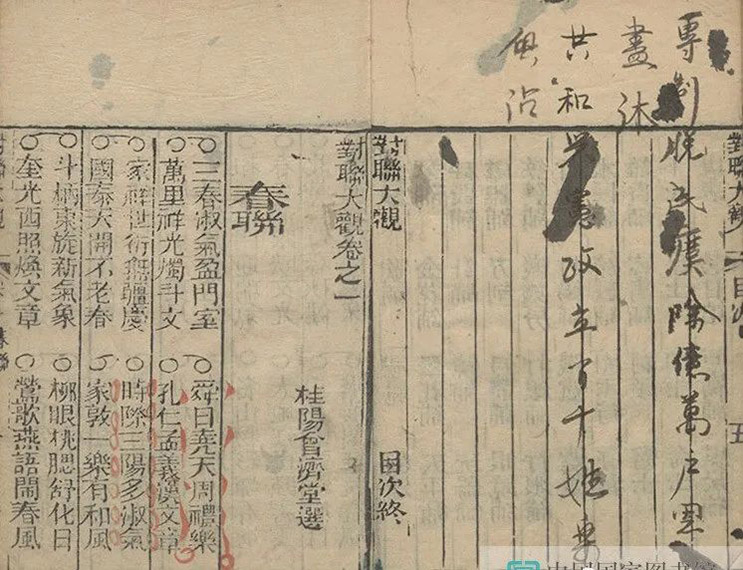 專制脫民瘼除億萬戶恩
盡沐
共和憲政立百千姓
對聯大觀 目次 五
對聯大觀 目次終
對聯大觀卷之一
桂陽會濟堂選
春聯
○三春淑氣盈門室 ○舜日堯天周禮樂
萬里祥光燭斗文 孔仁孟義漢文章
○家祥世衍無疆慶 ○時際三陽多淑氣
國泰天開不老春 家敦一樂有和風
○斗柄東旋新氣象 ○柳眼桃腮舒化日
○奎光西照煥文章 ○鶯歌燕語鬧春風
中国国家图书馆